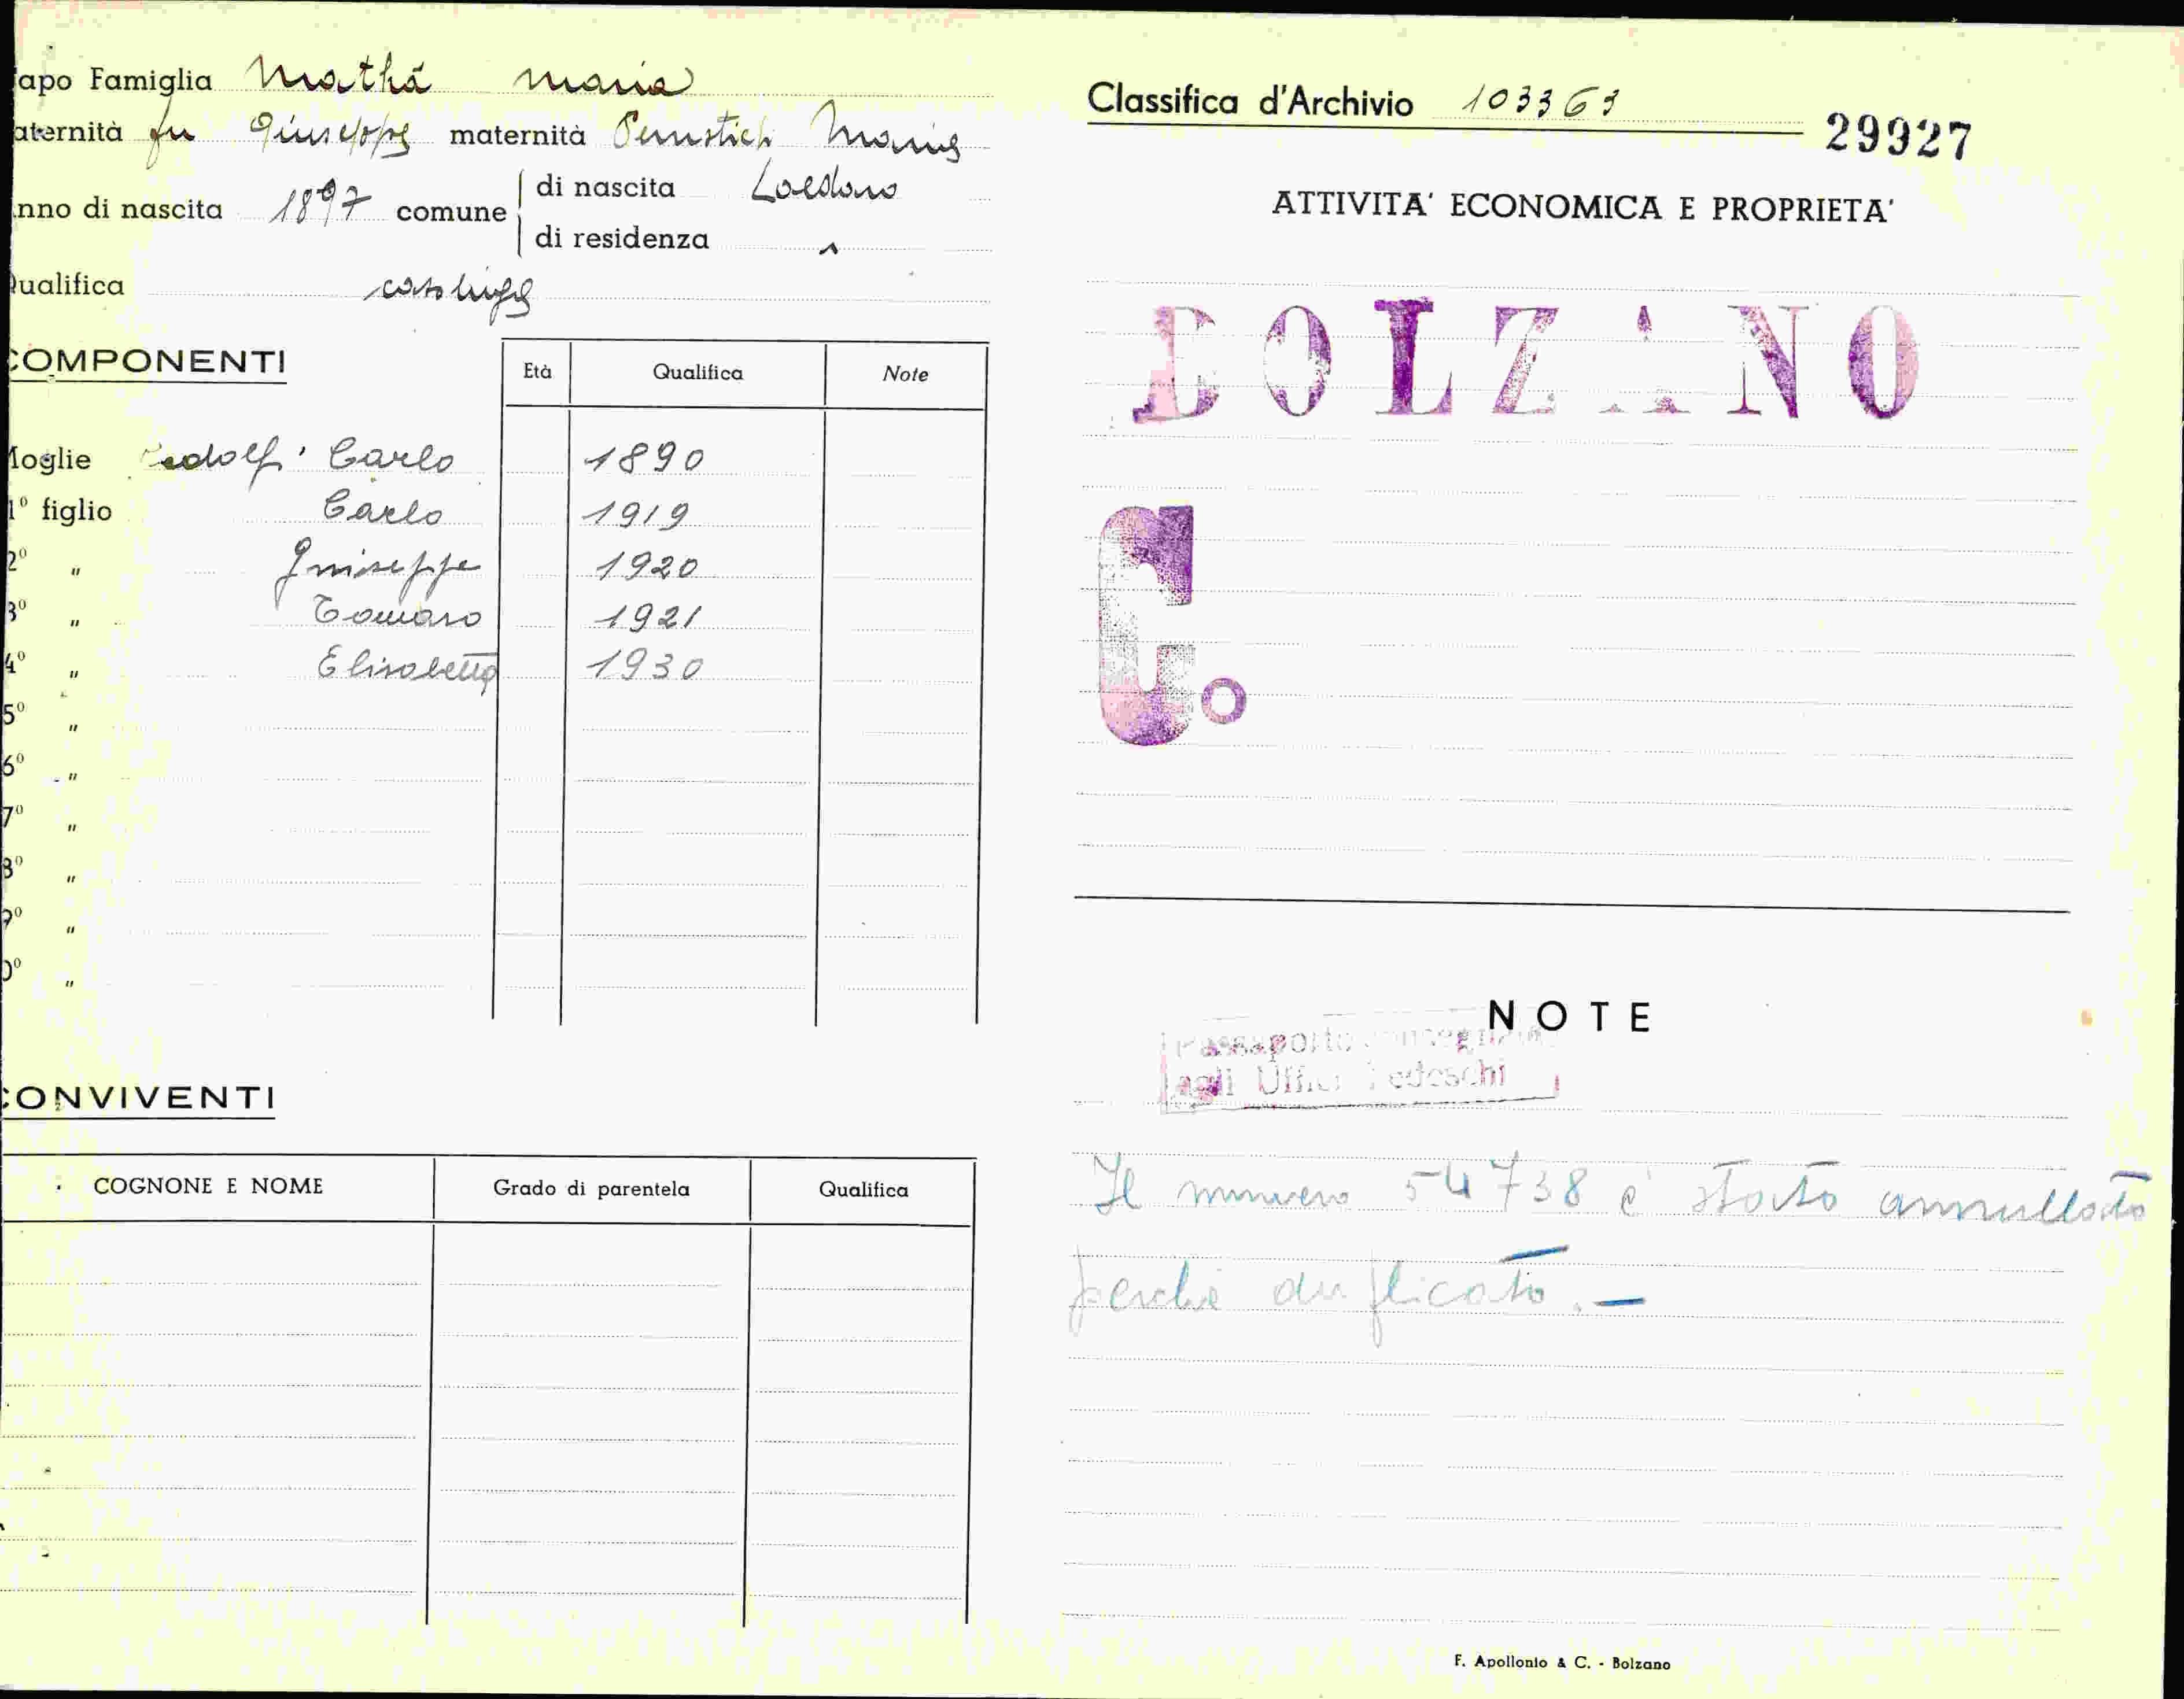 apo Famiglia Mathá Maria
aternità fu Giuseppe maternità Maria
nno di nascita 1897 comune di nascita
di residenza
ualifica casalinga
COMPONENTI
Età Qualifica Note
Moglie Carlo 1890
1º figlio Carlo 1919
2º " Giuseppe 1920
3º " Tomaso 1921
4º " Elisabetta 1930
5º "
6º "
7º "
8º "
9º "
0º "
CONVIVENTI
COGNONE E NOME Grado di parentela Qualifica
Classifica d'Archivio 103363
29927
ATTIVITA' ECONOMICA E PROPRIETA'
BOLZANO
C.o
NOTE
Passaporto consegnato
agli Uffici Tedeschi
Il numero 54738 è stato annullato
perchè duplicato. —
F. Apollonio & C. - Bolzano